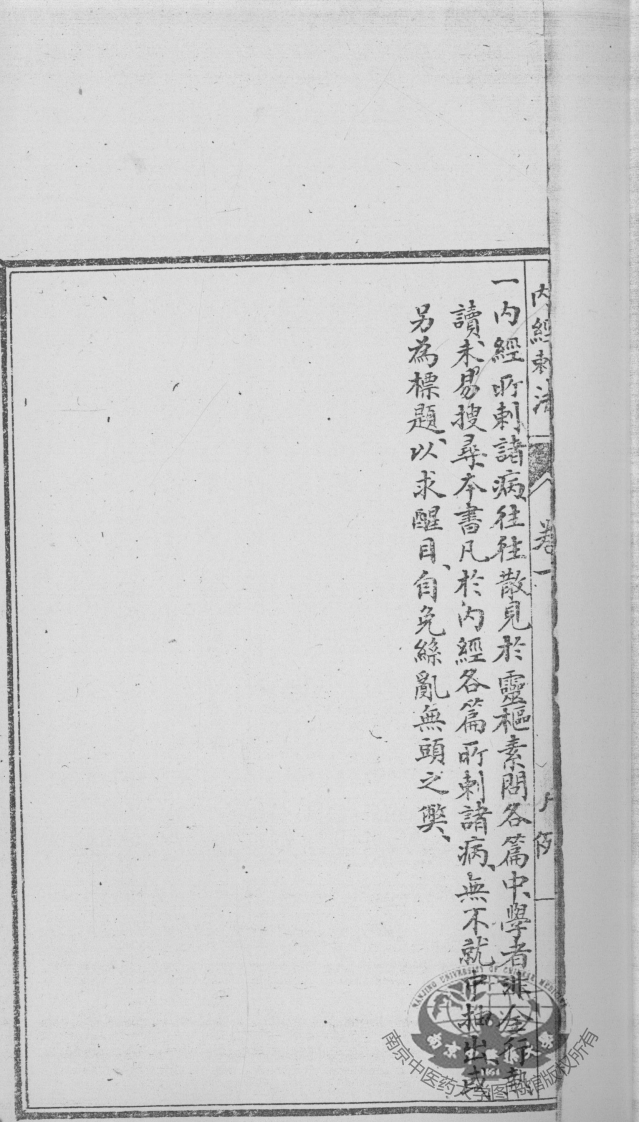 内經刺法 卷一 凡例 一
一內經所刺諸病、往往散見於靈樞素問各篇中、學者非全行熟
讀、未易搜尋、本書凡於內經各篇所刺諸病、無不就中抽出、或
另為標題、以求醒目、自免絲亂無頭之獘、
南京中医药大学图书馆版权所有
NANJING UNIVERSITY OF CHINESE MEDICINE